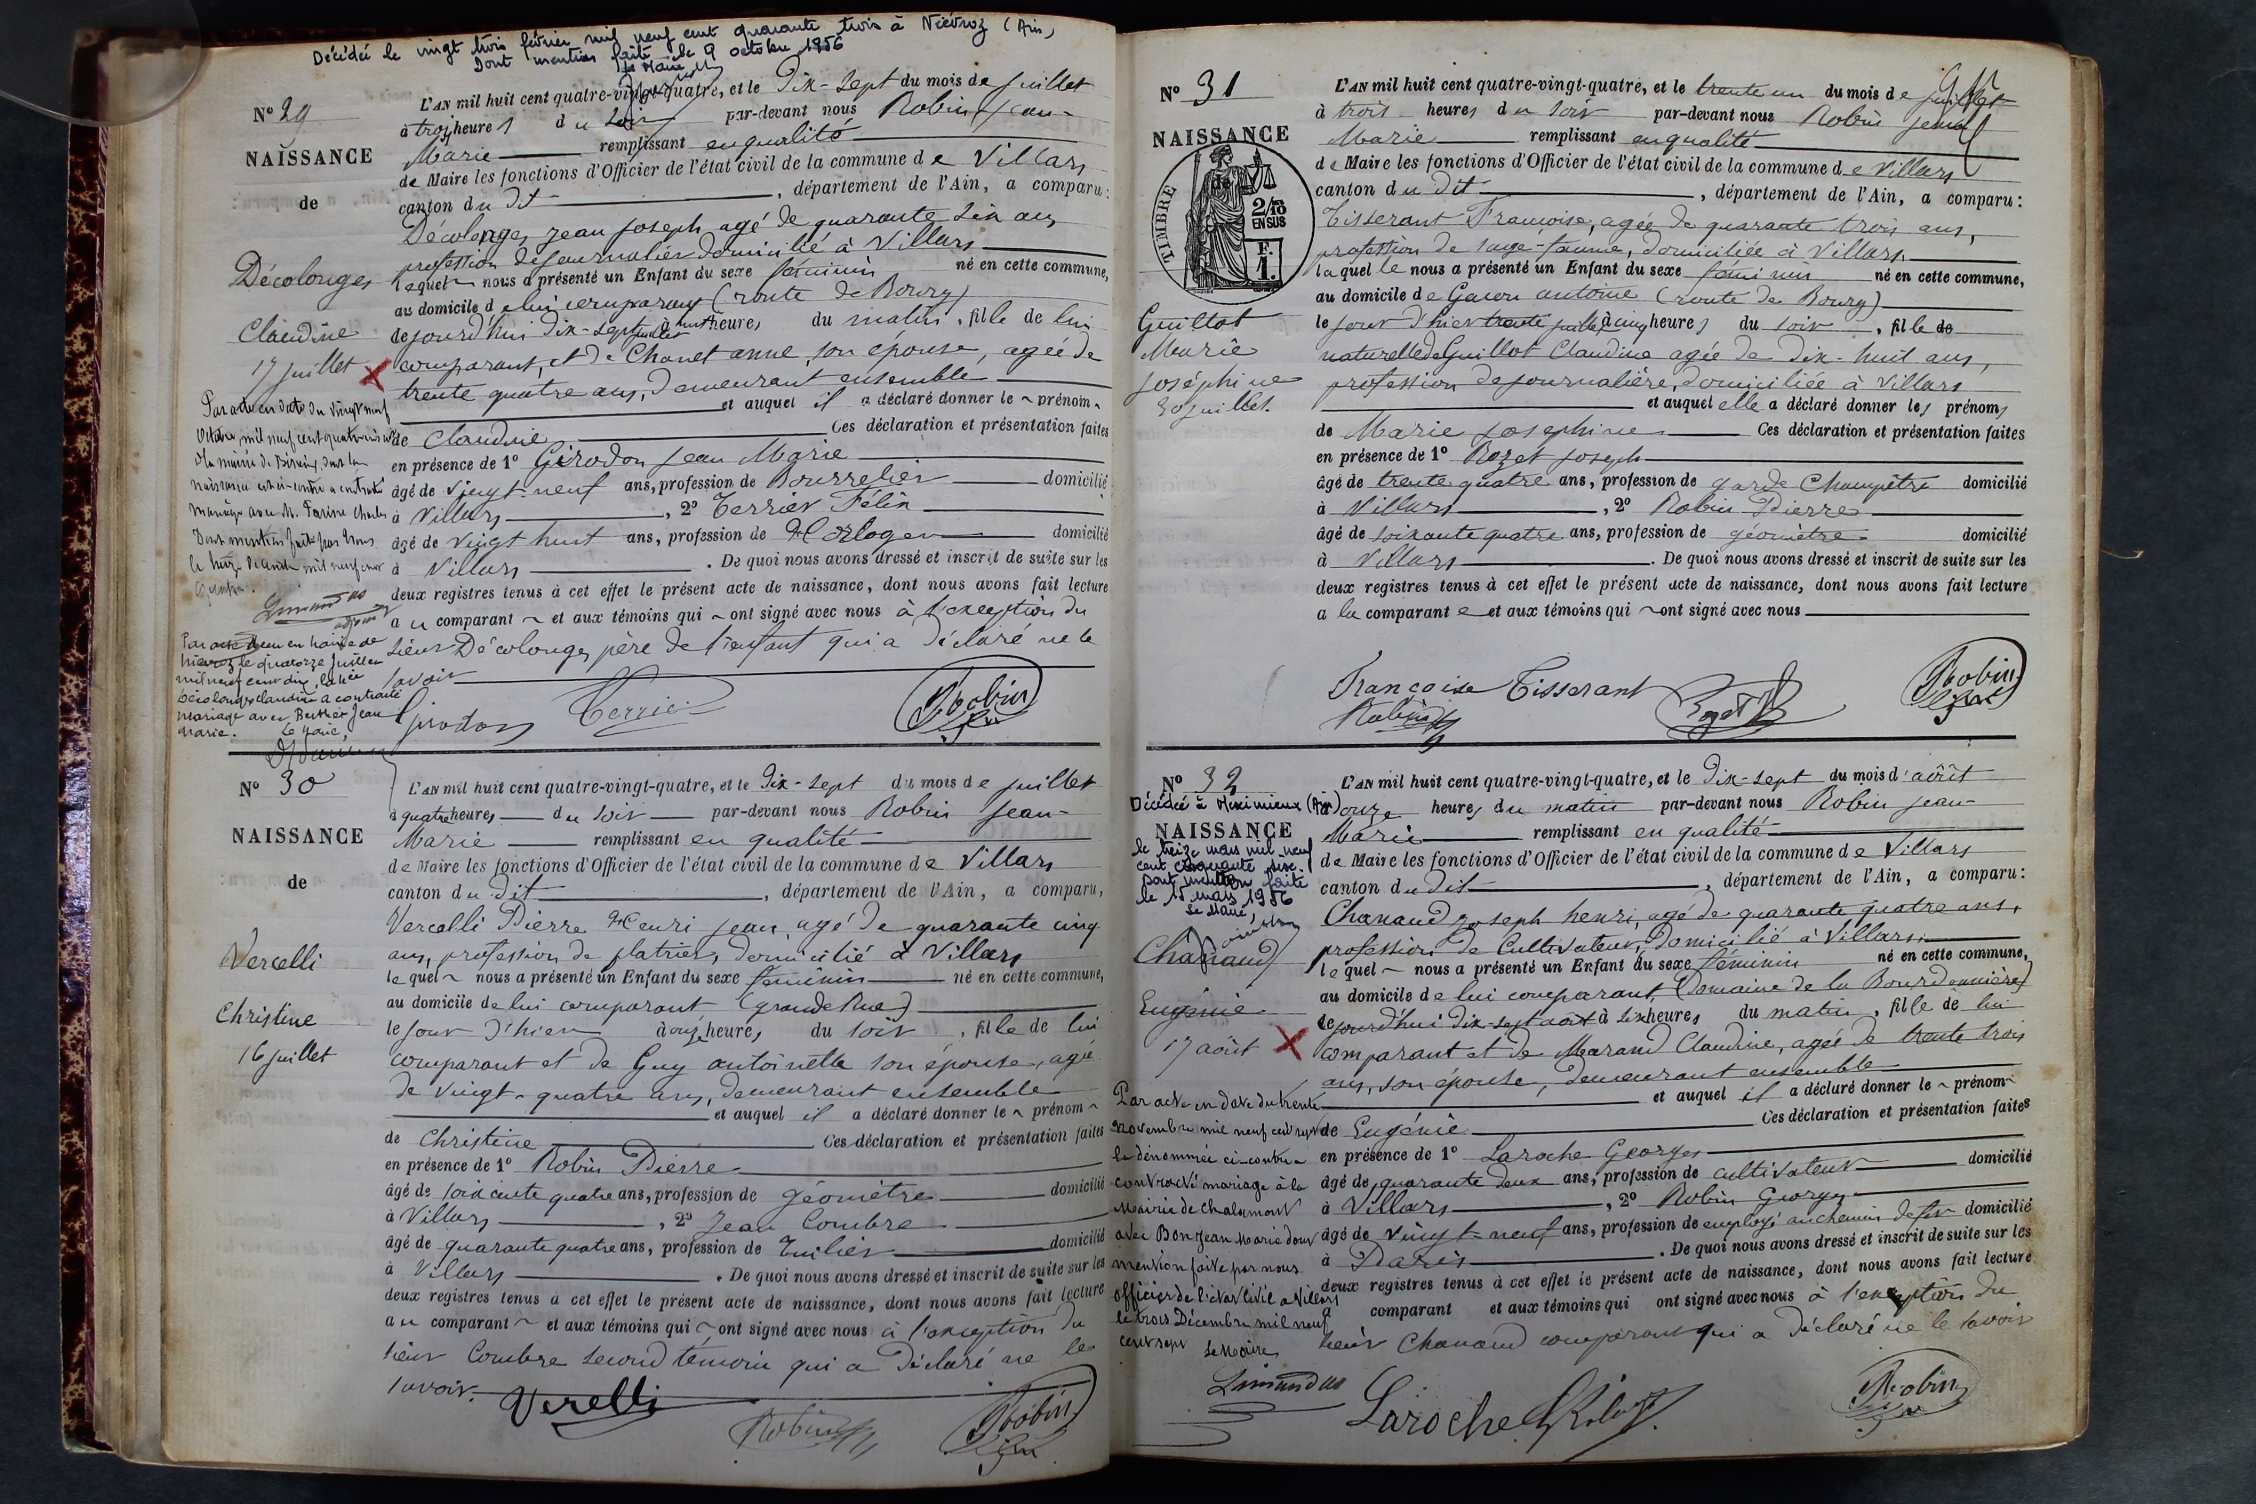 Décédée le vingt trois février mil neuf cent quarante trois à Niévroz (Ain)
Dont mention faite le 9 octobre 1956
Le Maire
N° 29
NAISSANCE
de
Décolonges
Claudine
17 juillet
Par acte en date du vingt neuf
octobre mil neuf cent
à la mairie de dont la
naissance est ci-contre a contracté
mariage avec M. Farine Charles
Dont mention faite par nous
le mil neuf cent
adjoint
Par acte en mairie de
Niévroz le quatorze juillet
mil neuf cent dix, la
Décolonges Claudine a contracté
mariage avec Berthet Jean
Marie. Le Maire,
L'AN mil huit cent quatre-vingt-quatre, et le Dix-sept du mois de juillet
à trois heures du soir par-devant nous Robin Jean-
Marie remplissant en qualité
de Maire les fonctions d'Officier de l'état civil de la commune de Villars
canton du dit , département de l'Ain, a comparu :
Décolonges Jean Joseph agé de quarante six ans
profession de journalier domicilié à Villars
lequel nous a présenté un Enfant du sexe féminin né en cette commune,
au domicile de lui comparant (route de Bourg)
de jourd'hui dix-sept juillet à heures du matin, fille de lui
comparant, et de Chanel anne, son épouse, agée de
trente quatre ans, demeurant ensemble
et auquel il a déclaré donner le prénom
de Claudine Ces déclaration et présentation faites
en présence de 1° Girodon Jean Marie
âgé de vingt-neuf ans, profession de Bourrelier domicilié
à Villars , 2° Terrier Félix
âgé de vingt huit ans, profession de Horloger domicilié
à Villars . De quoi nous avons dressé et inscrit de suite sur les
deux registres tenus à cet effet le présent acte de naissance, dont nous avons fait lecture
au comparant et aux témoins qui ont signé avec nous à l'exception du
sieur Décolonges père de l'enfant qui a déclaré ne le
savoir
Girodon Terrier Robin
N° 30
NAISSANCE
de
Vercelli
Christine
16 juillet
L'AN mil huit cent quatre-vingt-quatre, et le Dix-sept du mois de juillet
à quatre heures du soir par-devant nous Robin Jean-
Marie remplissant en qualité
de Maire les fonctions d'Officier de l'état civil de la commune de Villars
canton du dit , département de l'Ain, a comparu,
Vercelli Pierre Henri Jean, agé de quarante cinq
ans, profession de platrier, domicilié à Villars
lequel nous a présenté un Enfant du sexe féminin né en cette commune,
au domicile de lui comparant (grande Rue)
le jour d'hier à onze heures du soir, fille de lui
comparant et de Guy antoinette son épouse, agée
de vingt-quatre ans, demeurant ensemble
et auquel il a déclaré donner le prénom
de Christine Ces déclaration et présentation faites
en présence de 1° Robin Pierre
âgé de soixante quatre ans, profession de géomètre domicilié
à Villars , 2° Jean Combre
âgé de quarante quatre ans, profession de Tuilier domicilié
à Villars . De quoi nous avons dressé et inscrit de suite sur les
deux registres tenus à cet effet le présent acte de naissance, dont nous avons fait lecture
au comparant et aux témoins qui ont signé avec nous à l'exception du
sieur Combre second témoin qui a déclaré ne le
savoir.
Verelli Robin Robin
N° 31
NAISSANCE
de
TIMBRE
2/10
EN SUS
F.
1.
Guillot
Marie
Joséphine
30 juillet.
L'AN mil huit cent quatre-vingt-quatre, et le trente un du mois de juillet
à trois heures du soir par-devant nous Robin Jean
Marie remplissant en qualité
de Maire les fonctions d'Officier de l'état civil de la commune de Villars
canton du dit , département de l'Ain, a comparu :
Tisserant Francoise, agée de quarante trois ans,
profession de sage-famme, domiciliée à Villars
laquelle nous a présenté un Enfant du sexe féminin né en cette commune,
au domicile de Gacon antoine (route de Bourg)
le jour d'hier trente juillet à cinq heures du soir, fille de
naturelle de Guillot Claudine agée de dix-huit ans,
profession de journalière, domiciliée à Villars
et auquel elle a déclaré donner les prénoms
de Marie Josephine Ces déclaration et présentation faites
en présence de 1° Rozet Joseph
âgé de trente quatre ans, profession de garde Champêtre domicilié
à Villars , 2° Robin Pierre
âgé de soixante quatre ans, profession de géomètre domicilié
à Villars . De quoi nous avons dressé et inscrit de suite sur les
deux registres tenus à cet effet le présent acte de naissance, dont nous avons fait lecture
a la comparante et aux témoins qui ont signé avec nous
Françoise Tisserant Rozet Robin
Robin
N° 32
Décédée à Meximieux (Ain)
NAISSANCE
le treize mars mil neuf
cent cinquante six.
Dont mention faite
le 15 mars 1956
Le Maire,
Chanaud
Eugénie
17 août
Par acte en date du trente
novembre mil neuf cent sept
la dénommée ci-contre a
contracté mariage à la
Mairie de Chalamont
avec Bon Jean Marie dont
mention faite par nous
officier de l'état civil à Villars
le trois Décembre mil neuf
cent sept Le Maire
L'AN mil huit cent quatre-vingt-quatre, et le Dix-sept du mois d'août
à onze heures du matin par-devant nous Robin Jean-
Marie remplissant en qualité
de Maire les fonctions d'Officier de l'état civil de la commune de Villars
canton du dit , département de l'Ain, a comparu :
Chanaud Joseph henri, agé de quarante quatre ans,
profession de Cultivateur, Domicilié à Villars
lequel nous a présenté un Enfant du sexe féminin né en cette commune,
au domicile de lui comparant, (Domaine de la Bourdonnière)
de jourd'hui dix-sept août à six heures du matin, fille de lui
comparant et de Marand Claudine, agée de trente trois
ans, son épouse, demeurant ensemble
et auquel il a déclaré donner le prénom
de Eugénie Ces déclaration et présentation faites
en présence de 1° Laroche Georges
âgé de quarante deux ans, profession de cultivateur domicilié
à Villars , 2° Robin Georges
âgé de vingt-neuf ans, profession de employé au chemin de fer domicilié
à Paris . De quoi nous avons dressé et inscrit de suite sur les
deux registres tenus à cet effet le présent acte de naissance, dont nous avons fait lecture
comparant et aux témoins qui ont signé avec nous à l'exception du
sieur Chanaud comparant qui a déclaré ne le savoir
Laroche G Robin Robin